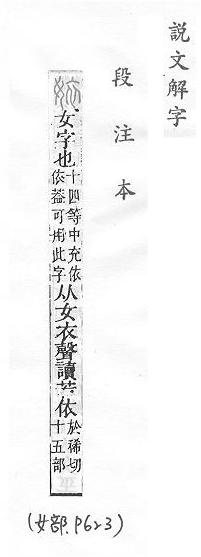 説文解字
段注本
㚦女字也十四等中充依依葢可用此字从女衣聲讀若依於稀切十五部
(女部.P623)